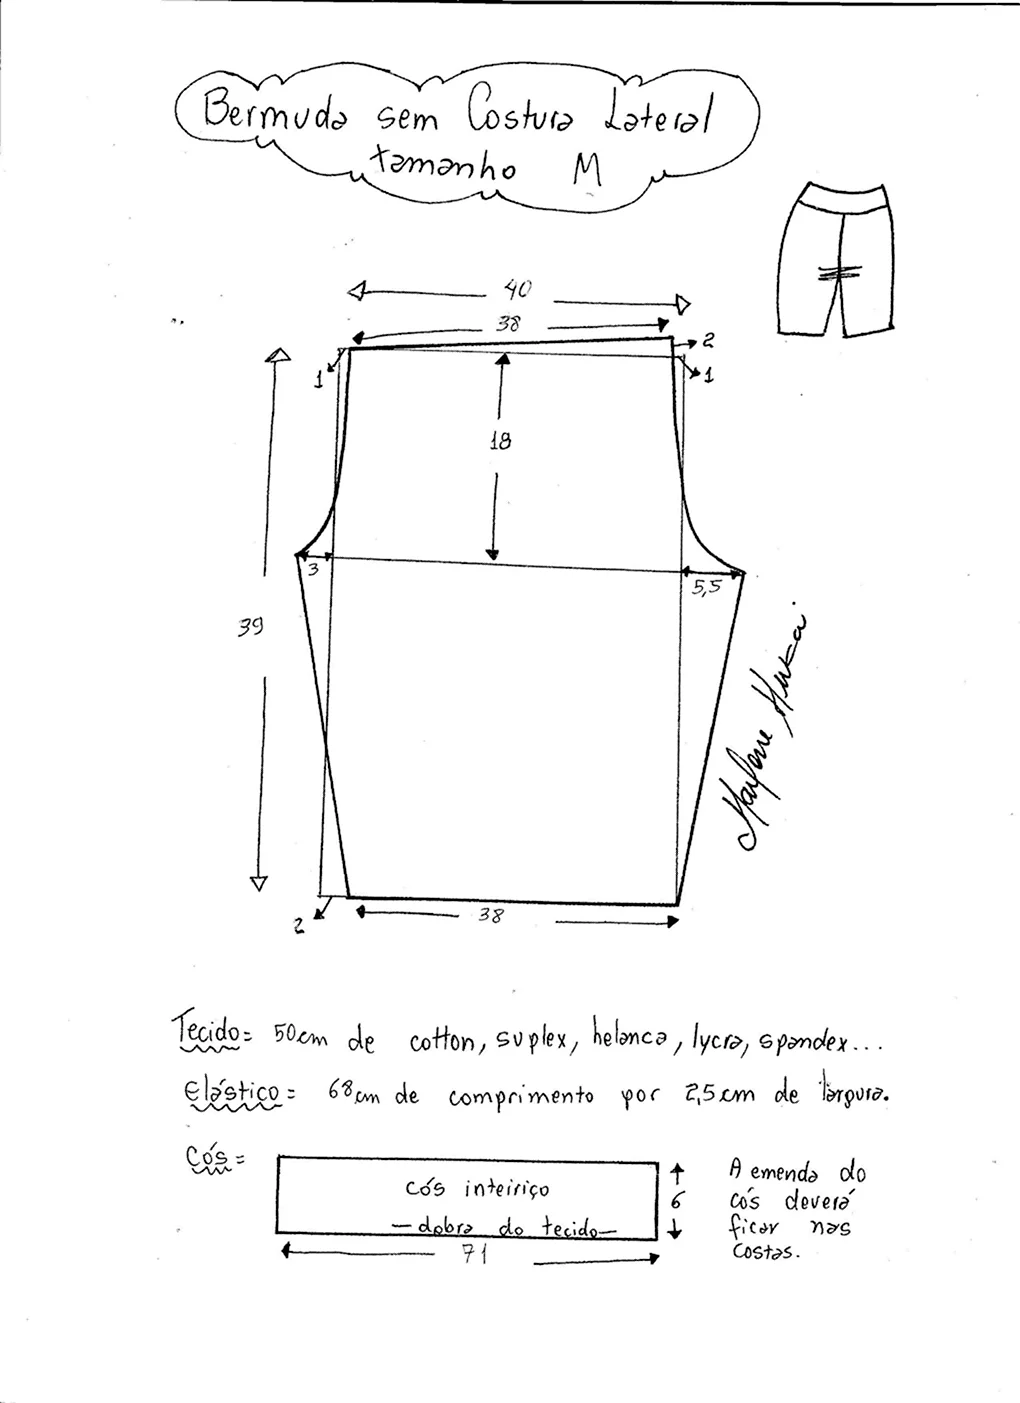 Bermuda sem Costura Lateral
tamanho M
40
38
2
1
1
18
3
5,5
39
2
38
Marlene Mukai
Tecido = 50cm de cotton, suplex, helanca, lycra, spandex...
Elástico = 68cm de comprimento por 2,5cm de largura.
Cós =
cós inteiriço
— dobra do tecido —
6
71
A emenda do
cós deverá
ficar nas
costas.